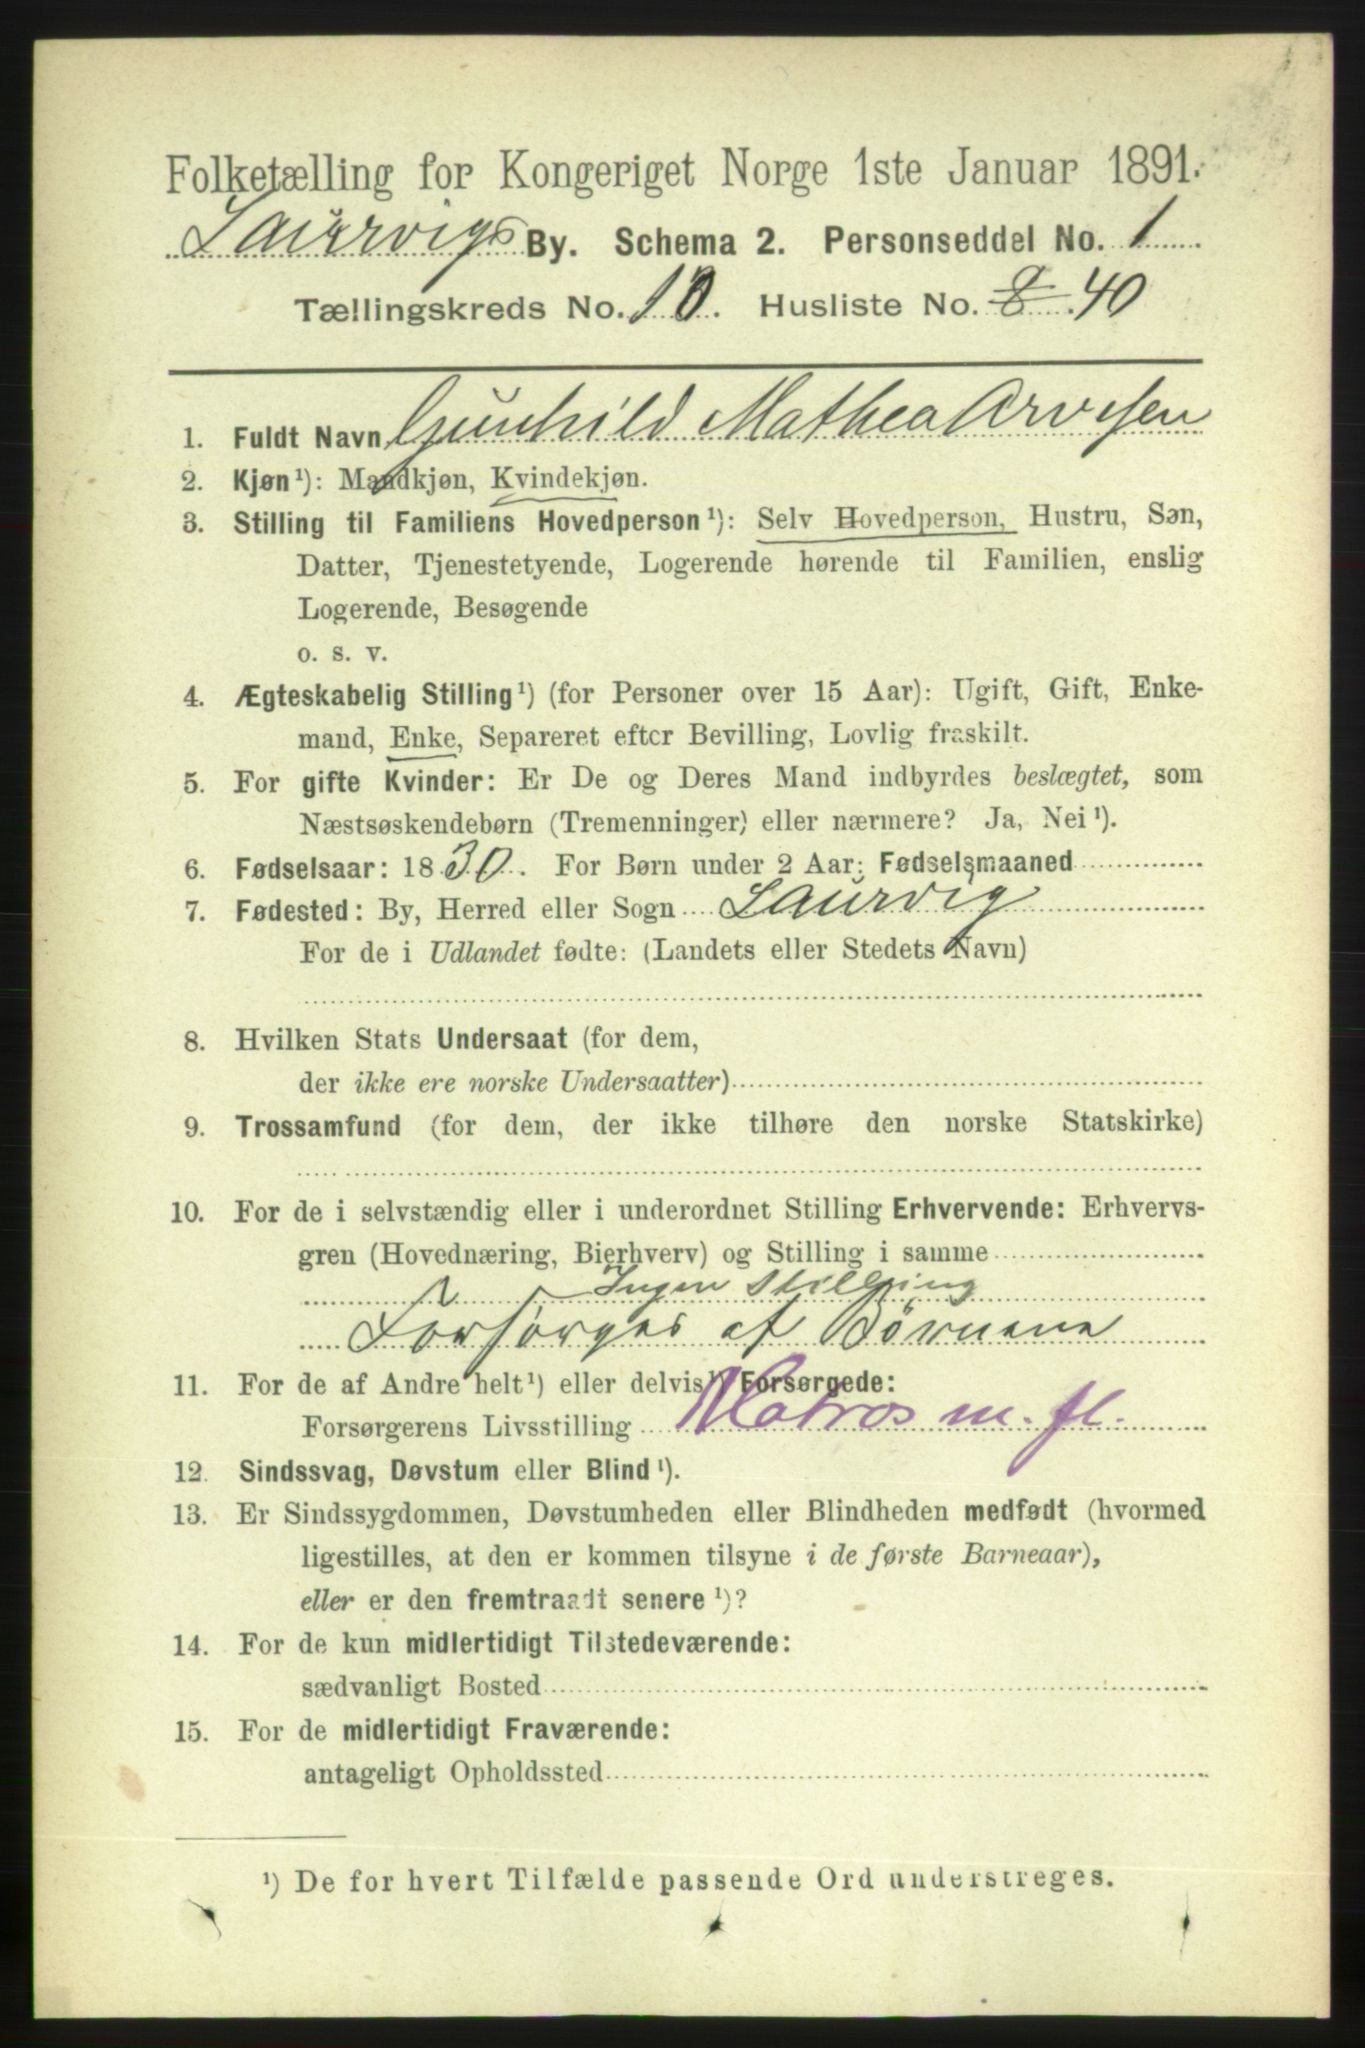 Folketælling for Kongeriget Norge 1ste Januar 1891.
Laurvigs By. Schema 2. Personseddel No. 1
Tællingskreds No. 10. Husliste No. 8 40
1. Fuldt Navn Gunhild Mathea Arvesen
2. Kjøn¹): Mandkjøn, Kvindekjøn.
3. Stilling til Familiens Hovedperson¹): Selv Hovedperson, Hustru, Søn,
Datter, Tjenestetyende, Logerende hørende til Familien, enslig
Logerende, Besøgende
o. s. v.
4. Ægteskabelig Stilling¹) (for Personer over 15 Aar): Ugift, Gift, Enke-
mand, Enke, Separeret efter Bevilling, Lovlig fraskilt.
5. For gifte Kvinder: Er De og Deres Mand indbyrdes beslægtet, som
Næstsøskendebørn (Tremenninger) eller nærmere? Ja, Nei¹).
6. Fødselsaar: 1830. For Børn under 2 Aar: Fødselsmaaned
7. Fødested: By, Herred eller Sogn Laurvig
For de i Udlandet fødte: (Landets eller Stedets Navn)
8. Hvilken Stats Undersaat (for dem,
der ikke ere norske Undersaatter)
9. Trossamfund (for dem, der ikke tilhøre den norske Statskirke)
10. For de i selvstændig eller i underordnet Stilling Erhvervende: Erhvervs-
gren (Hovednæring, Bierhverv) og Stilling i samme
Ingen Stilling
Forsørges af Børnene
11. For de af Andre helt¹) eller delvis¹) Forsørgede:
Forsørgerens Livsstilling Matros m. fl.
12. Sindssvag, Døvstum eller Blind¹).
13. Er Sindssygdommen, Døvstumheden eller Blindheden medfødt (hvormed
ligestilles, at den er kommen tilsyne i de første Barneaar),
eller er den fremtraadt senere¹)?
14. For de kun midlertidigt Tilstedeværende:
sædvanligt Bosted
15. For de midlertidigt Fraværende:
antageligt Opholdssted
¹) De for hvert Tilfælde passende Ord understreges.